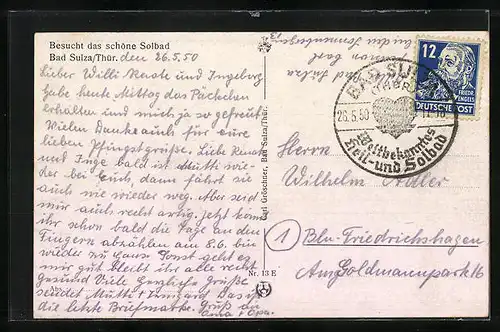 Besucht das schöne Solbad
Bad Sulza/Thür. den 26.5.50
Lieber Willi Renate und Ingeborg
Habe heute Mittag das Päckchen
erhalten und mich ja so gefreut
Vielen Dank auch für eure
lieben Pfingstgrüße. Liebe Renate
und Inge bald ist Mutti wie-
der bei Euch, dann fährt sie
auch nie wieder weg. Aber seid
mir auch recht artig. jetzt könnt
ihr schon bald die Tage an den
Fingern abzählen am 8.6. bin
wieder zu Haus Sonst geht es
mir gut bleibt ihr alle recht
gesund Viele herzliche Grüße
sendet Mutti + Irmgard Das ist
die letzte Briefmarke. Gruß an
Oma + Opa.
Carl Gröschner, Bad Sulza/Thür.
Nr. 13 E
BAD SULZA
(THÜR)
26.5.50
Weltbekanntes
Heil- und Solbad
12
FRIEDR.
ENGELS
DEUTSCHE POST
Herrn
Wilhelm Adler
1 Bln-Friedrichshagen
Am Goldmannpark 16